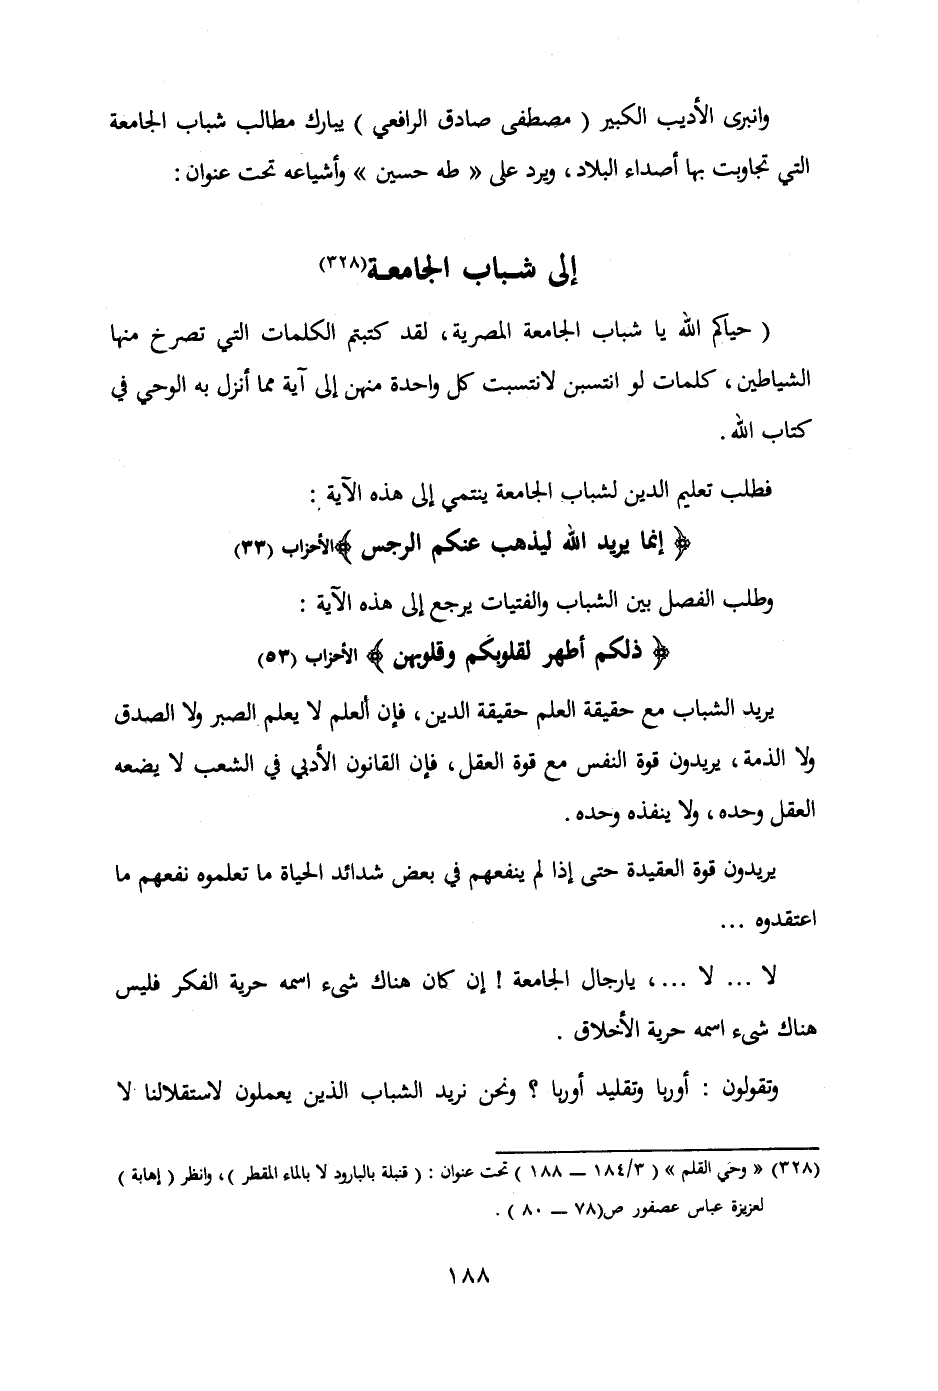 وانبرى الأديب الكبير ( مصطفى صادق الرافعي ) يبارك مطالب شباب الجامعة
التي تجاوبت بها أصداء البلاد ، ويرد على « طه حسين » وأشياعه تحت عنوان :
إلى شباب الجامعة(٣٢٨)
( حياكم الله يا شباب الجامعة المصرية ، لقد كتبتم الكلمات التي تصرخ منها
الشياطين ، كلمات لو انتسبن لانتسبت كل واحدة منهن إلى آية مما أنزل به الوحي في
كتاب الله .
فطلب تعليم الدين لشباب الجامعة ينتمي إلى هذه الآية :
﴿ إنما يريد الله ليذهب عنكم الرجس ﴾الأحزاب (٣٣)
وطلب الفصل بين الشباب والفتيات يرجع إلى هذه الآية :
﴿ ذلكم أطهر لقلوبكم وقلوبهن ﴾ الأحزاب (٥٣)
يريد الشباب مع حقيقة العلم حقيقة الدين ، فإن العلم لا يعلم الصبر ولا الصدق
ولا الذمة ، يريدون قوة النفس مع قوة العقل ، فإن القانون الأدبي في الشعب لا يضعه
العقل وحده ، ولا ينفذه وحده .
يريدون قوة العقيدة حتى إذا لم ينفعهم في بعض شدائد الحياة ما تعلموه نفعهم ما
اعتقدوه ...
لا ... لا ... ، يارجال الجامعة ! إن كان هناك شىء اسمه حرية الفكر فليس
هناك شىء اسمه حرية الأخلاق .
وتقولون : أوربا وتقليد أوربا ؟ ونحن نريد الشباب الذين يعملون لاستقلالنا لا
(٣٢٨) « وحي القلم » ( ٣/ ١٨٤ – ١٨٨ ) تحت عنوان : ( قنبلة بالبارود لا بالماء المقطر ) ، وانظر ( إهابة )
لعزيزة عباس عصفور ص(٧٨ – ٨٠ ) .
١٨٨